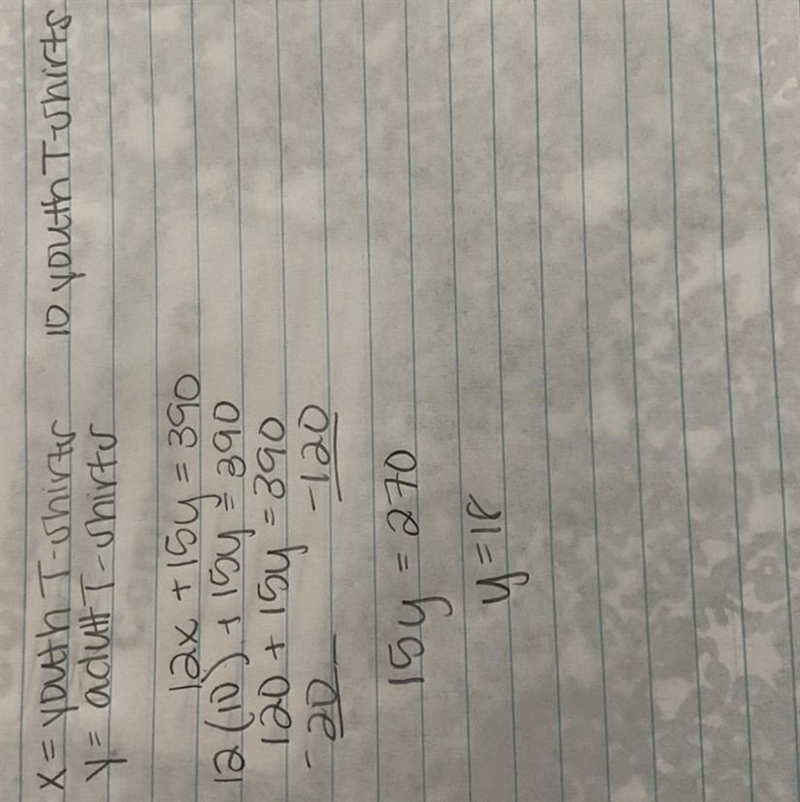 x = youth T-shirts 10 youth T-shirts
y = adult T-shirts
12x + 15y = 390
12(10) + 15y = 390
120 + 15y = 390
-20 -120
15y = 270
y = 18